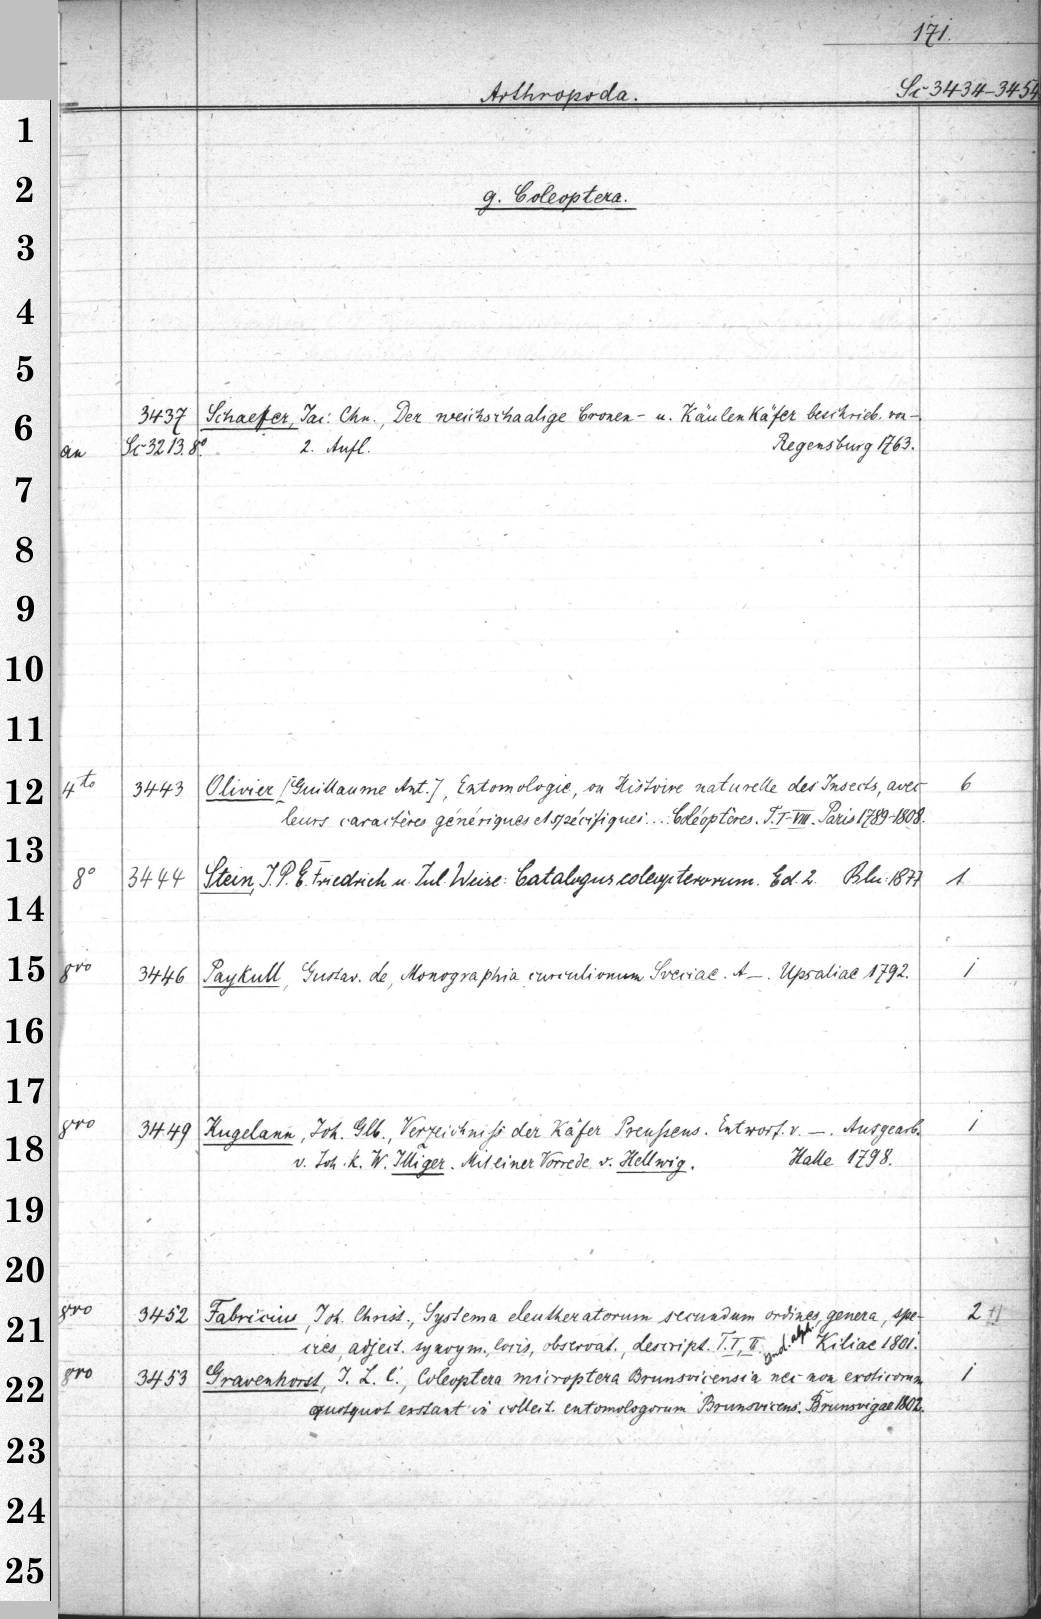 171.
Arthropoda. Sc 3434-3454
g. Coleoptera.
3437 Schaeffer, Jac: Chn., Der weichschaalige Cronen- u. KäulenKäfer beschrieb. von -.
an Sc 3213. 8° 2. Aufl. Regensburg 1763.
4to 3443 Olivier [Guillaume Ant.], Entomologie, ou Histoire naturelle des Insects, avec 6
leurs caractères génériques et spécifiques... Coléoptères. T. I-VIII. Paris 1789-1808.
8° 3444 Stein, J. P. E. Friedrich u. Jul. Weise: Catalogus coleopterorum. Ed. 2. Bln: 1877 1
8vo 3446 Paykull, Gustav. de, Monographia curculionum Sveciae. A -. Upsaliae 1792. 1
8vo 3449 Kugelann, Joh. Glb., Verzeichniß der Käfer Preußens. Entworf. v. -. Ausgearb. 1
v. Joh. K. W. Illiger. Mit einer Vorrede v. Hellwig. Halle 1798.
8vo 3452 Fabricius, Joh. Christ., Systema eleutheratorum secundum ordines, genera, spe- 2
cies, adject. synoym., locis, observat., descript. T. I, II. ind. alph. Kiliae 1801.
8vo 3453 Gravenhorst, J. L. C., Coleoptera microptera Brunsvicensia nec non exoticorum 1
quotquot exstant in collect. entomologorum Brunsvicens. Brunsvigae 1802.
1
2
3
4
5
6
7
8
9
10
11
12
13
14
15
16
17
18
19
20
21
22
23
24
25